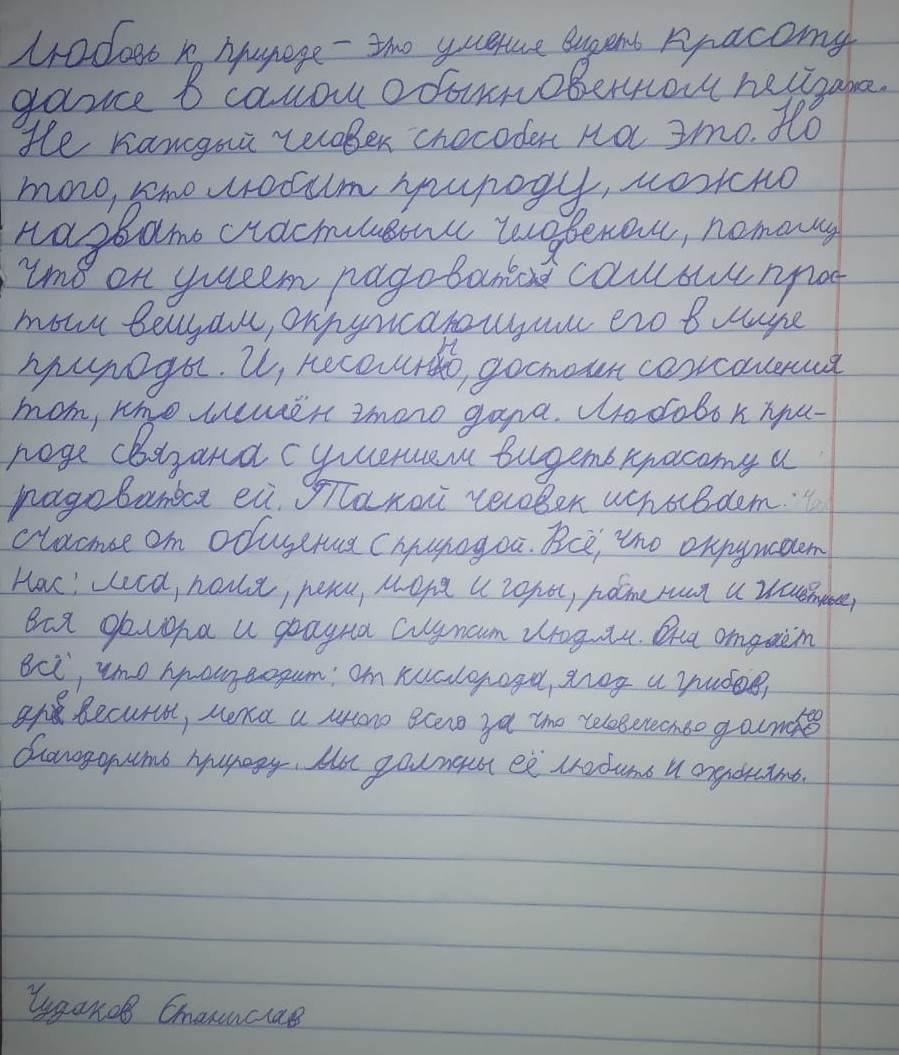 Любовь к природе – это умение видеть красоту
даже в самом обыкновенном пейзаже.
Не каждый человек способен на это. Но
того, кто любит природу, можно
назвать счастливым человеком, потому
что он умеет радоваться самым прос-
тым вещам, окружающим его в мире
природы. И, несомнно, достоин сожаления
тот, кто лишён этого дара. Любовь к при-
роде связана с умением видеть красоту и
радоваться ей. Такой человек испрывает
счастье от общения с природой. Всё, что окружает
нас: леса, поля, реки, моря и горы, ратения и животные,
вся флора и фауна служит людям. Она отдаёт
всё, что производит: от кислорода, ягод и грибов,
древесины, меха и много всего за что человечество должно
благодорить природу. Мы должны её любить и охронять.
Чудаков Станислав